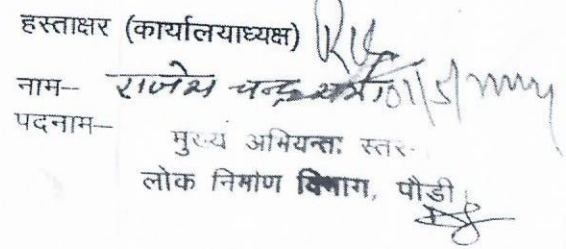 हस्ताक्षर (कार्यालयाध्यक्ष)
नाम– राजेश चन्द्र
पदनाम–
मुख्य अभियन्ता स्तर-
लोक निर्माण विभाग, पौडी